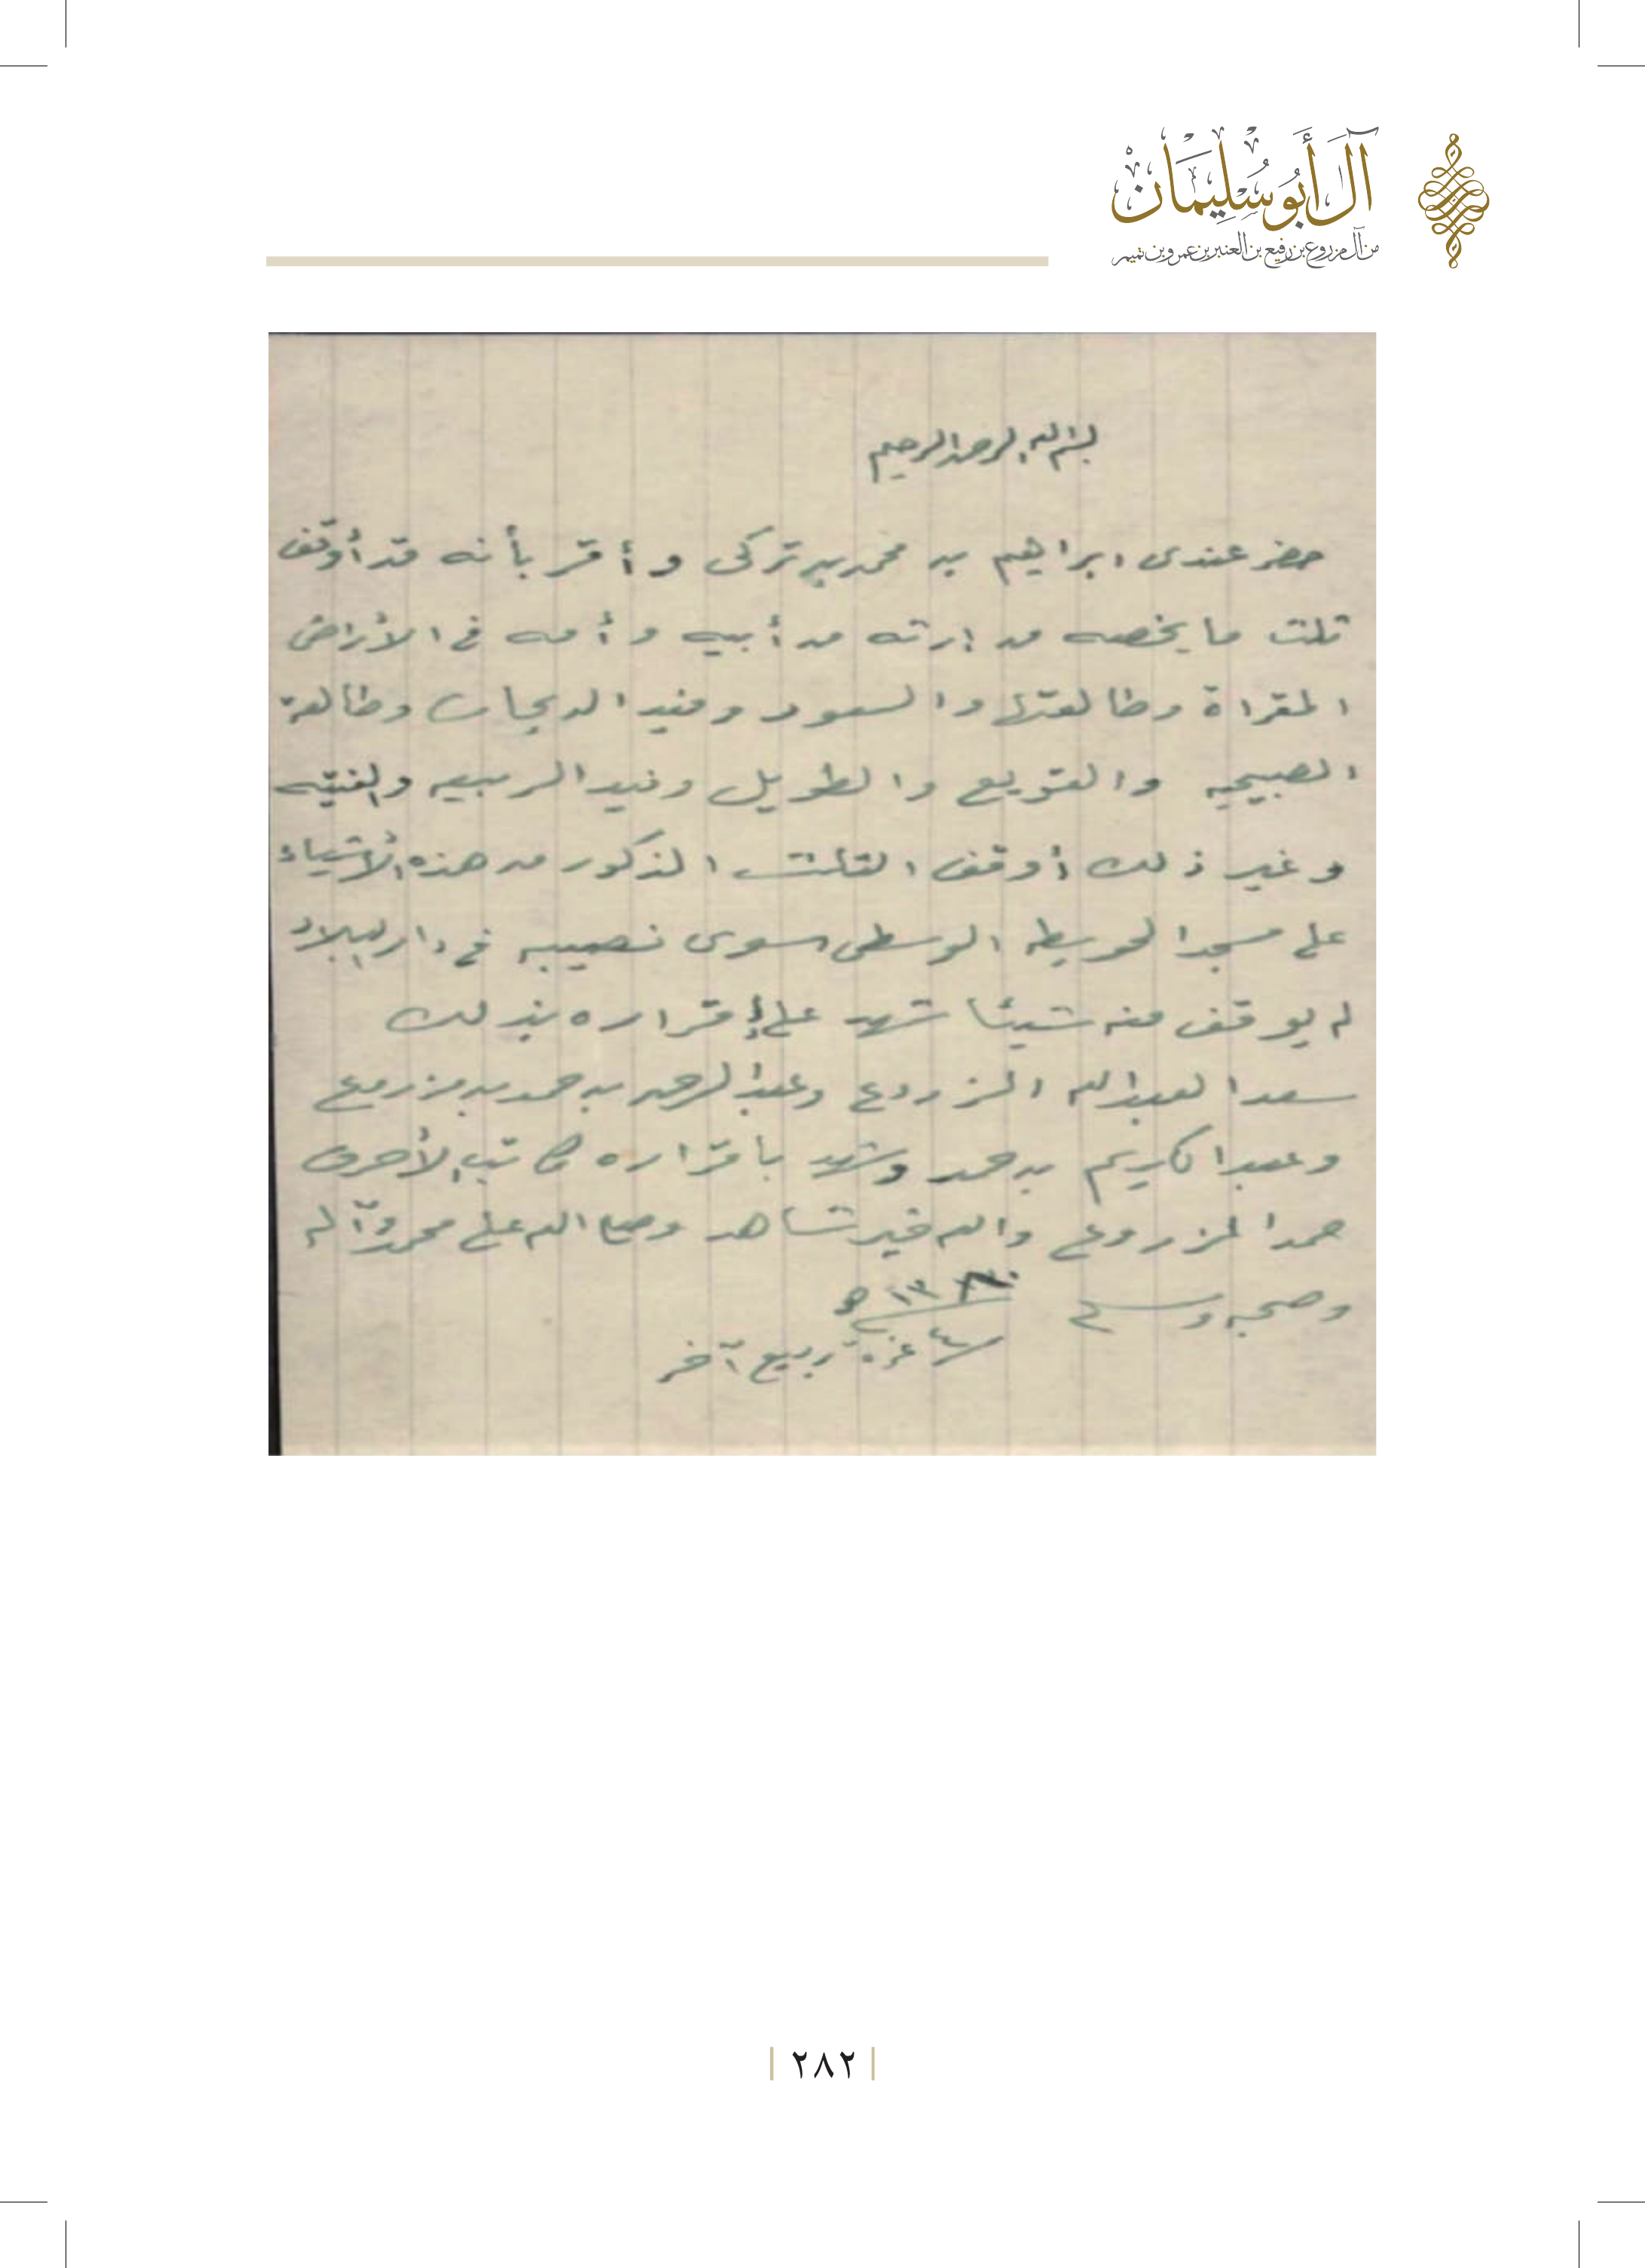 آل أبو سليمان
من آل مزروع بن رفيع بن العنبر بن عمرو بن تميم
بسم الله الرحمن الرحيم
حضر عندى ابراهيم بن محمد بن تركى و أقر بأنه قد أوقف
ثلث ما يخصه من إرثه من أبيه و أمه في الأراضى
المقراة وطالعتها والسعود وفيد الديحان وطالعة
الصبيحيه والقويع والطويل وفيد الربيعه
وغير ذلك أوقف الثلث المذكور من هذه الأشياء
على مسجد الحويطه الوسطى سوى نصيبه في دار البلاد
لم يوقف منه شيئا شهد على إقراره بذلك
سعد العبدالله المزروع وعبدالرحمن بن حمد بن مزروع
وعبدالكريم بن حمد وشهد باقراره كاتب الأحرف
حمد المزروع والله خير شاهد وصلى الله على محمد وآله
وصحبه وسلم
غرة ربيع آخر
٢٨٢